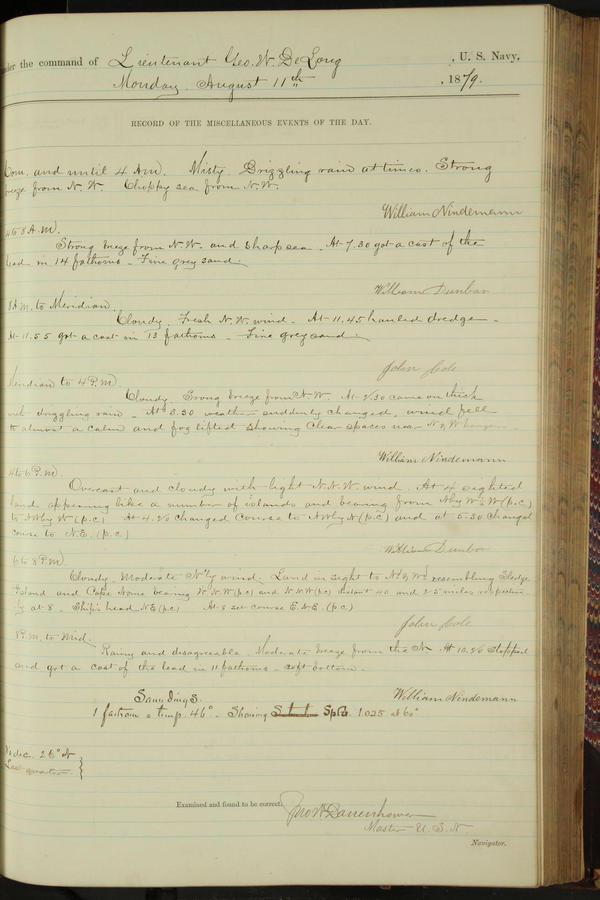 under the command of Lieutenant Geo. W. DeLong, U. S. Navy,
Monday, August 11th, 1879.
RECORD OF THE MISCELLANEOUS EVENTS OF THE DAY.
Com. and until 4 A.M. Misty. Drizzling rain at times. Strong
breeze from N. W. Choppy sea from N. W.
William Nindemann
4 to 8 A.M.
Strong breeze from N. W. and sharp sea. At 7.30 got a cast of the
lead in 14 fathoms - Fine grey sand.
William Dunbar
8 A.M. to Meridian.
Cloudy. Fresh N. W. wind. At 11.45 hauled dredge -
At 11.55 got a cast in 13 fathoms - Fine grey sand.
John Cole
Meridian to 4 P.M.
Cloudy. Strong breeze from N. W. At 2.30 came on thick
with drizzling rain - At 3.30 weather suddenly changed, wind fell
to almost a calm and fog lifted showing clear spaces near N & W
William Nindemann
4 to 6 P.M.
Overcast and cloudy with light N. N. W. wind. At 4 sighted
land appearing like a number of islands and bearing from N by W ½ W (p.c.)
to NW by W (p.c.) At 4.20 changed course to NW by N (p.c.) and at 5.30 changed
course to N. E. (p.c.)
William Dunbar
6 to 8 P.M.
Cloudy. Moderate N'ly wind. Land in sight to N'd & W'd resembling Sledge
Island and Cape Nome bearing W N W (p.c) and N N W (p.c) distant 40 and 25 miles respective-
ly at 8. Ship's head N E (p.c) At 8 set course E. N. E. (p.c)
John Cole
8 P.M. to Mid.
Rainy and disagreeable. Moderate breeze from the N. At 10.20 stopped
and got a cast of the lead in 11 fathoms - soft bottom -
William Nindemann
Soundings
1 fathom = temp. 46° - Showing Sp. Gr. 1.025 at 60°
dec. 26° N
Last quarter.
Examined and found to be correct.
Jno W Danenhower
Master U. S. N.
Navigator.